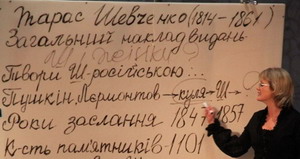 Тарас Шевченко (1814-1861)
Загальний наклад видань
Твори Ш-російською...
Пушкін, Лєрмонтов → куля → Ш →
Роки заслання 1847 1857
К-сть пам'ятників - 1101